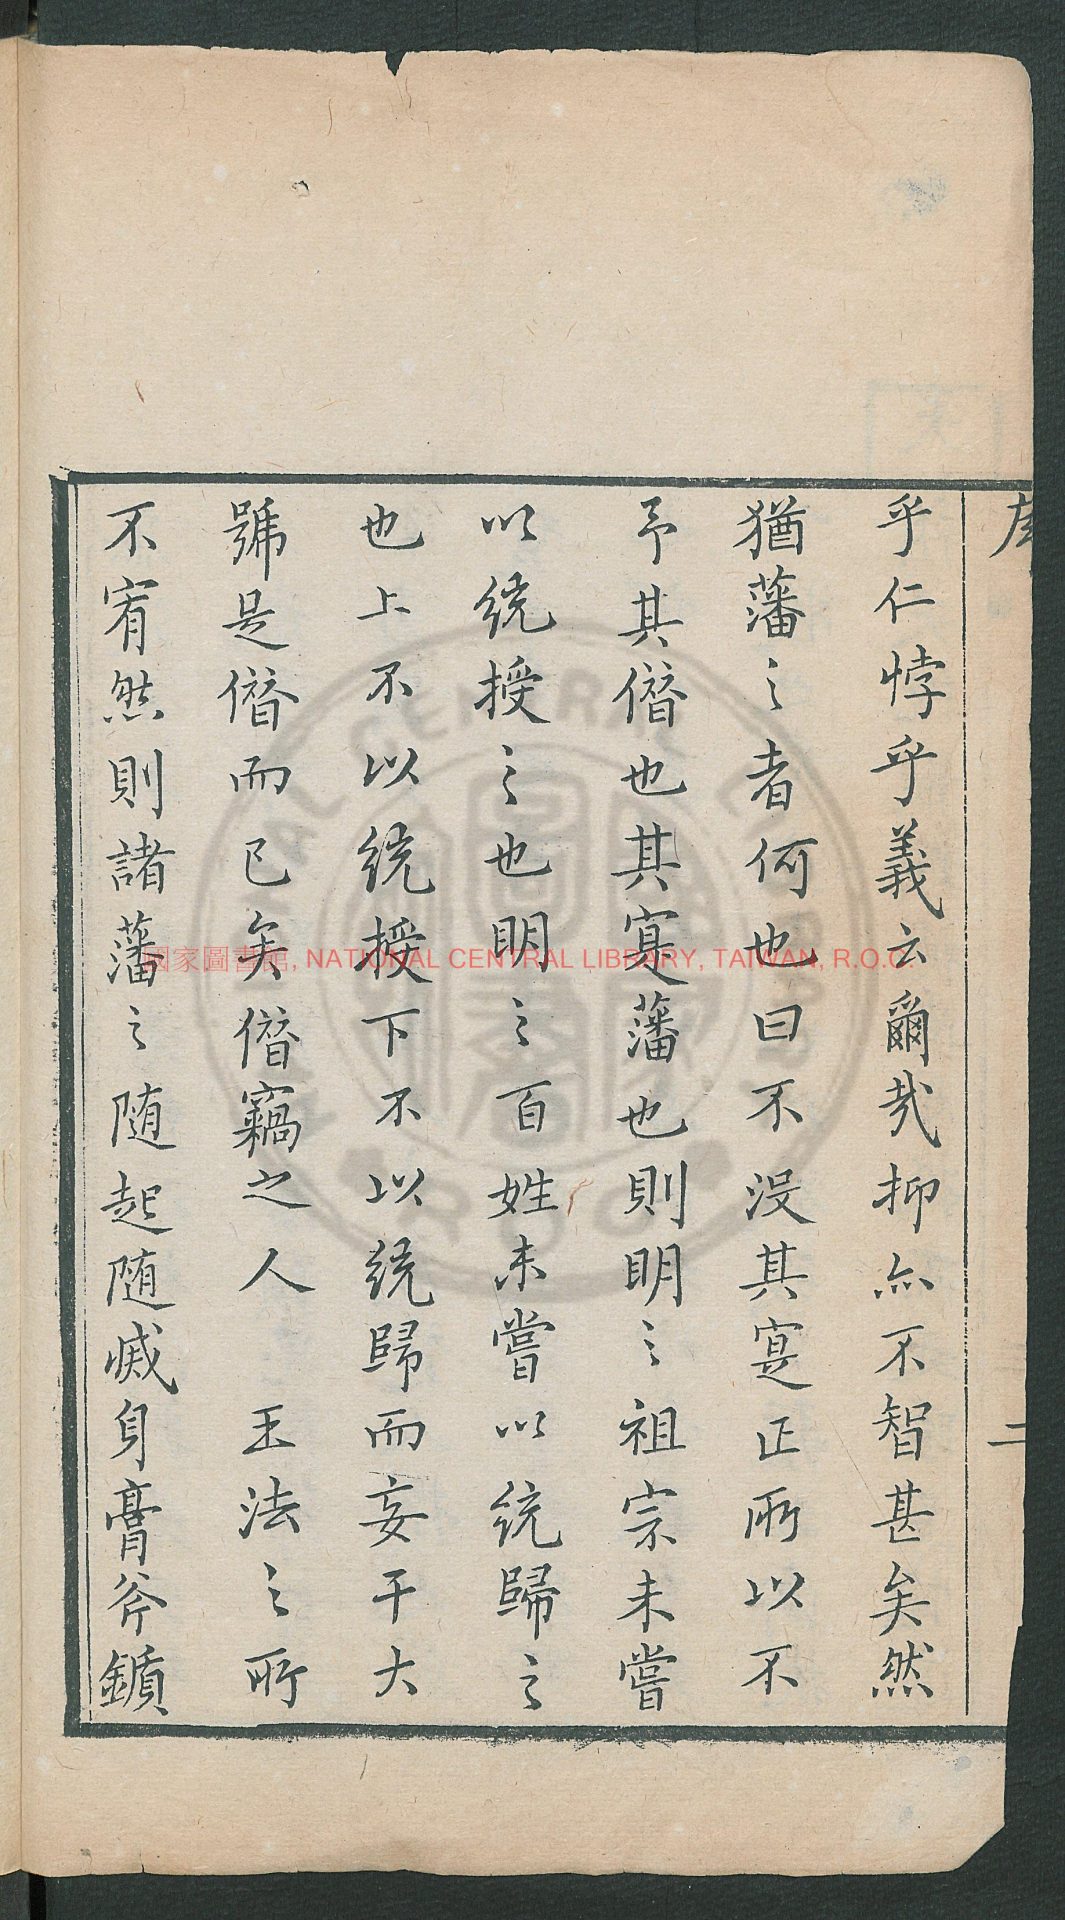 序
二
乎仁悖乎義云爾哉抑亦不智甚矣然
猶藩之者何也曰不没其寔正所以不
予其僭也其寔藩也則明之祖宗未嘗
以統授之也明之百姓未嘗以統歸之
也上不以統授下不以統歸而妄干大
號是僭而已矣僭竊之人 王法之所
不宥然則諸藩之随起随滅身膏斧鑕
國家圖書館, NATIONAL CENTRAL LIBRARY, TAIWAN, R.O.C